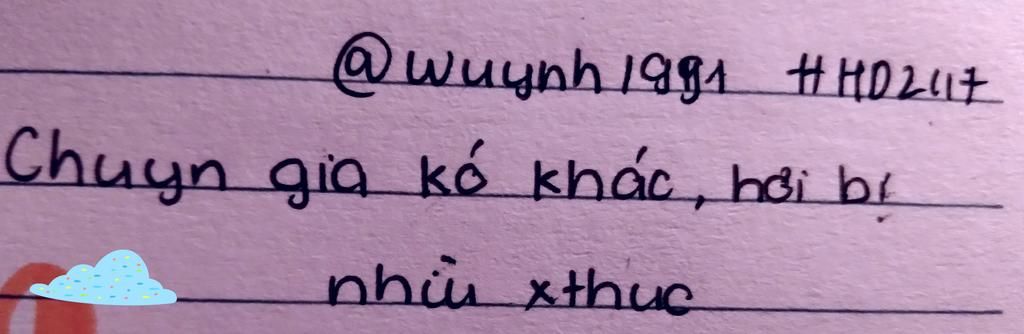 @wuynh1991 #HD24t
Chuyn gia kó khác, hơi bị
nhìu xthuc